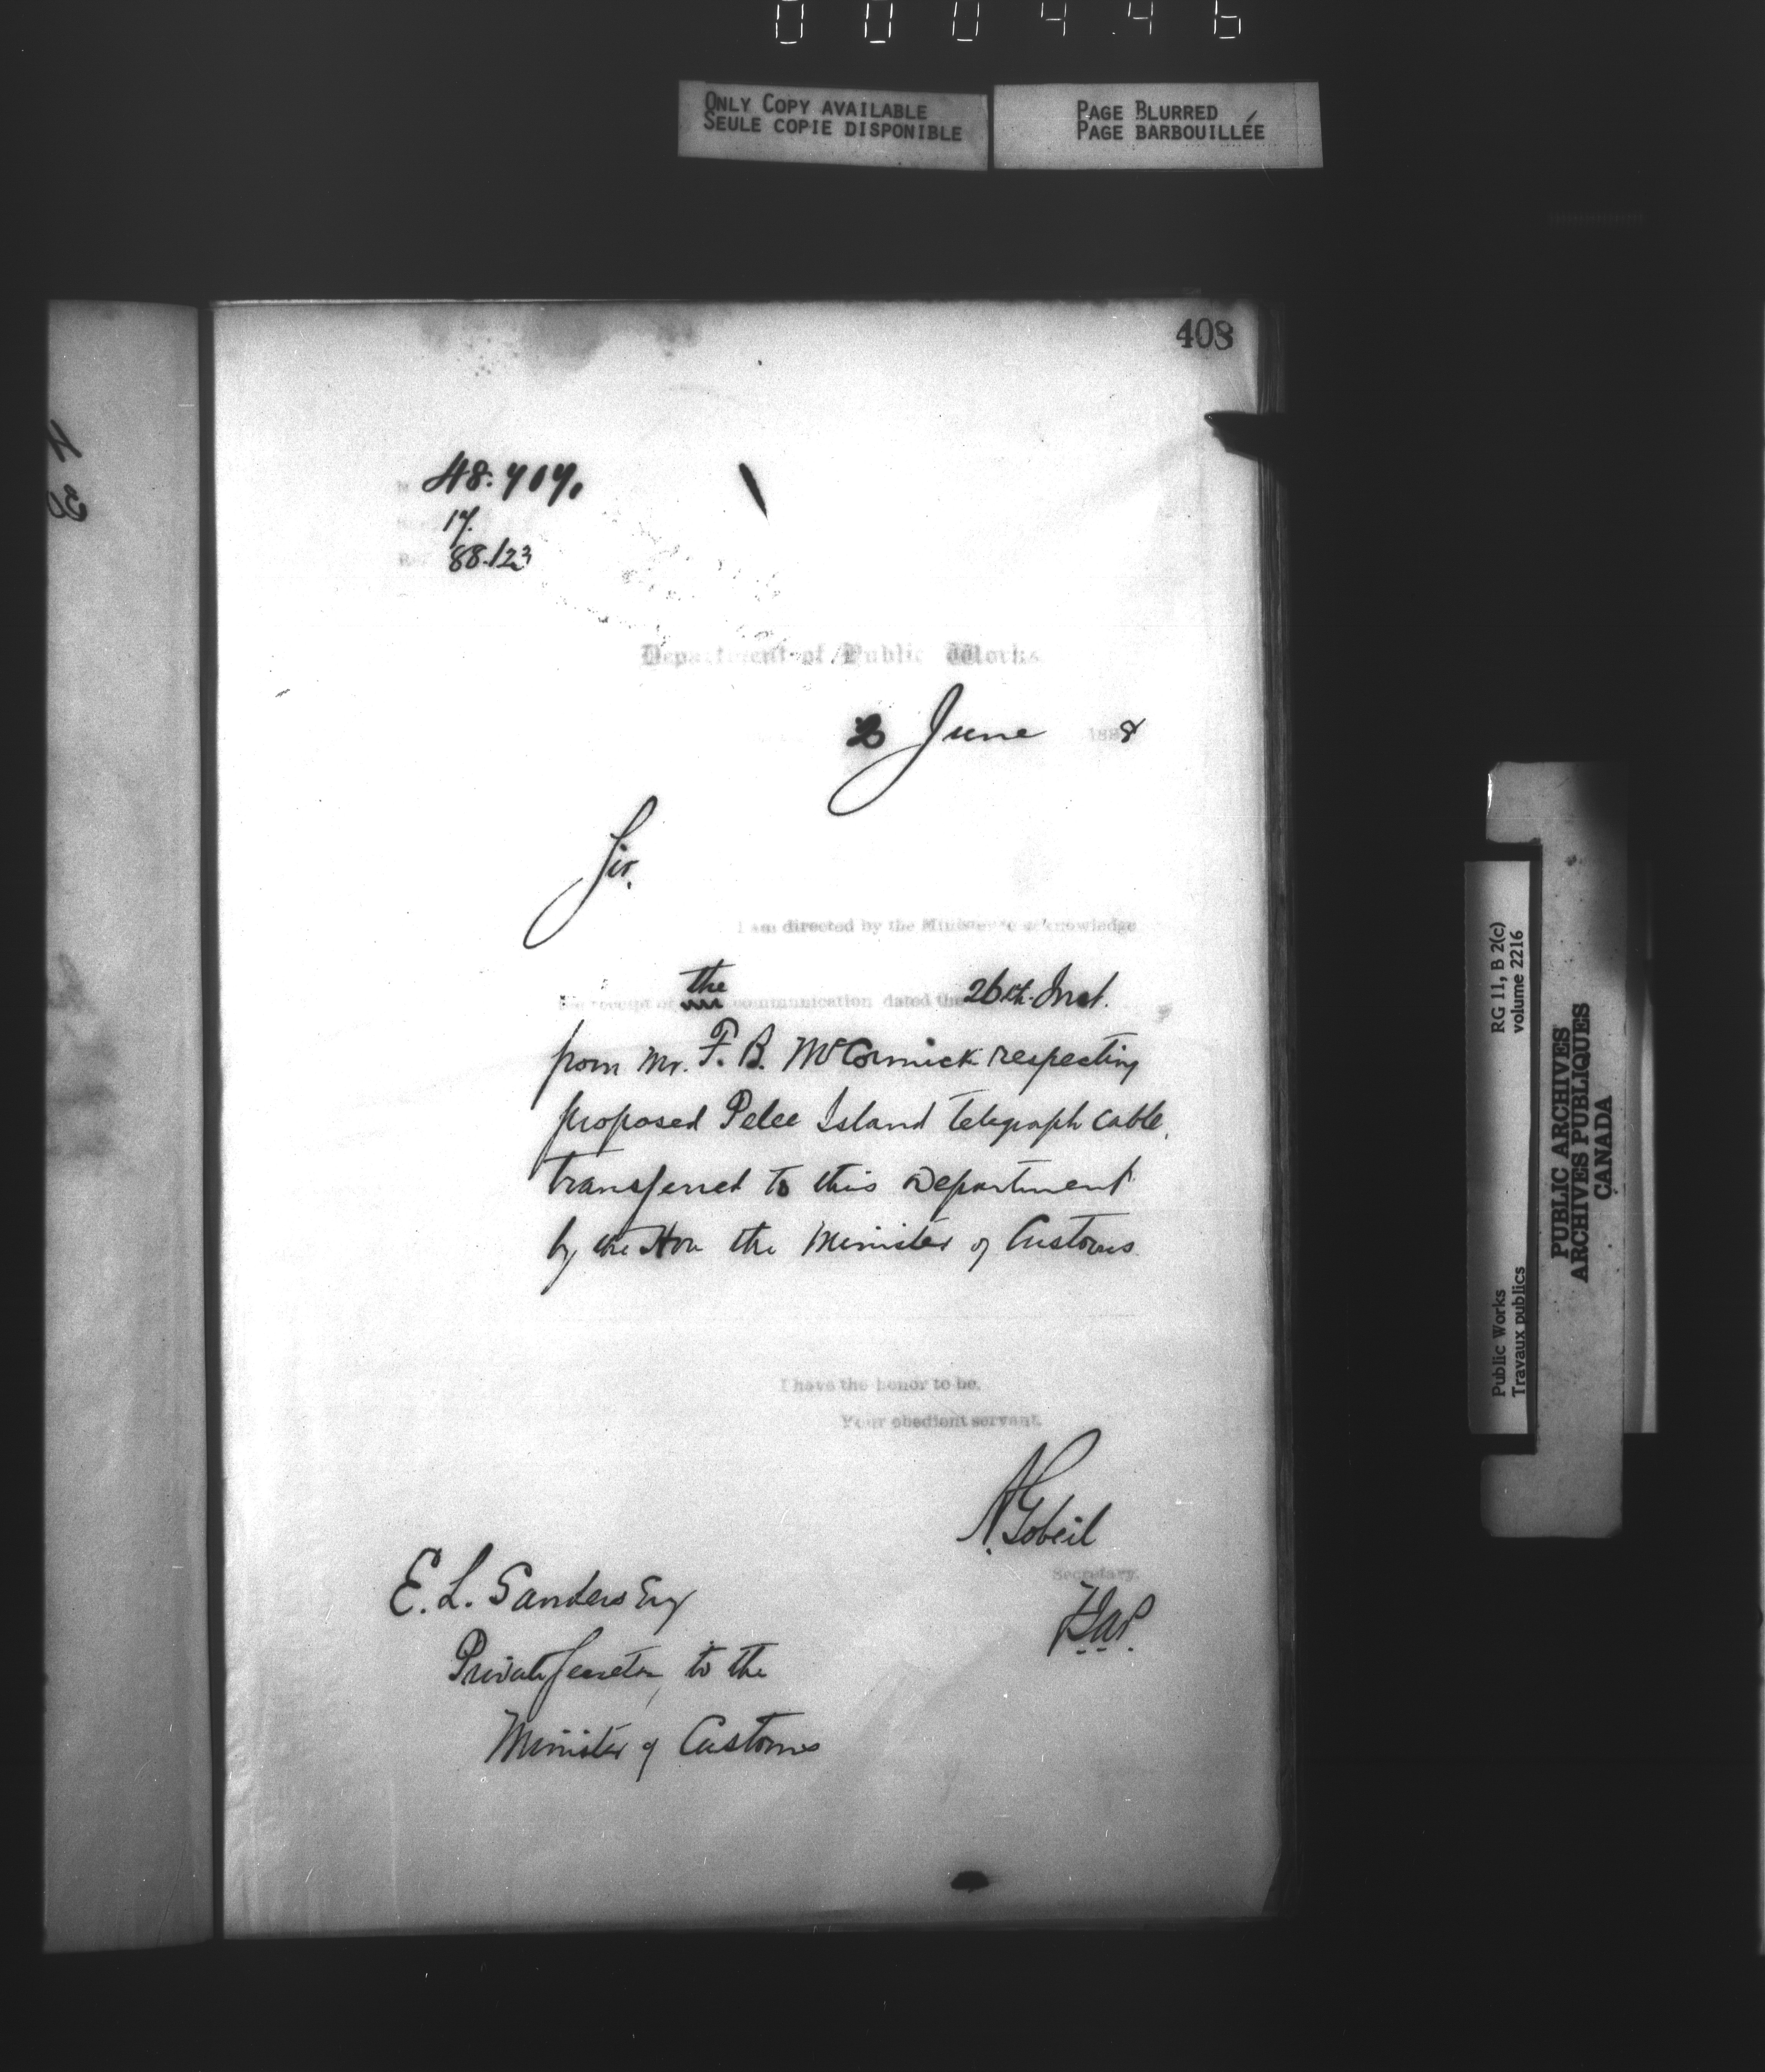 000446
ONLY COPY AVAILABLE
SEULE COPIE DISPONIBLE
PAGE BLURRED
PAGE BARBOUILLÉE
408
48.707.
17.
88.123
Department of Public Works
June 1888
Sir.
I am directed by the Minister to acknowledge
the
receipt of communication dated the 26th. Inst.
from Mr. F. B. McCormick respecting
proposed Pelee Island telegraph cable,
transferred to this Department
by the Hon the Minister of Customs
I have the honor to be,
Your obedient servant,
A. Gobeil
Secretary.
E. L. Sanders Esq
Private Secretary to the
Minister of Customs
RG 11, B 2(c)
volume 2216
Public Works
Travaux publics
PUBLIC ARCHIVES
ARCHIVES PUBLIQUES
CANADA